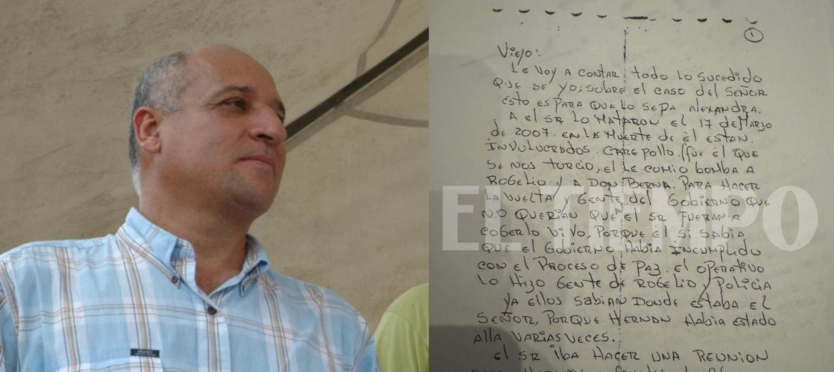 1
Viejo:
LE VOY A CONTAR TODO LO SUCEDIDO
QUE SE YO; SOBRE EL CASO DEL SEÑOR
ESTO ES PARA QUE LO SEPA ALEXANDRA.
A EL SR LO MATARON EL 17 DE MARZO
DE 2007. EN LA MUERTE DE EL ESTAN
INVOLUCRADOS. CARE POLLO (FUE EL QUE
SE NOS TORCIO, EL LE COMIO BOMBA A
ROGELIO Y A DON BERNA. PARA HACER
LA VUELTA Y GENTE DEL GOBIERNO QUE
NO QUERIAN QUE EL SR FUERAN A
COGERLO VIVO, PORQUE EL SI SABIA
QUE EL GOBIERNO HABIA INCUMPLIDO
CON EL PROCESO DE PAZ. EL OPERATIVO
LO HIZO GENTE DE ROGELIO Y POLICIA
YA ELLOS SABIAN DONDE ESTABA EL
SEÑOR, PORQUE HERNAN HABIA ESTADO
ALLA VARIAS VECES.
EL SR IBA HACER UNA REUNION
EL TIEMPO